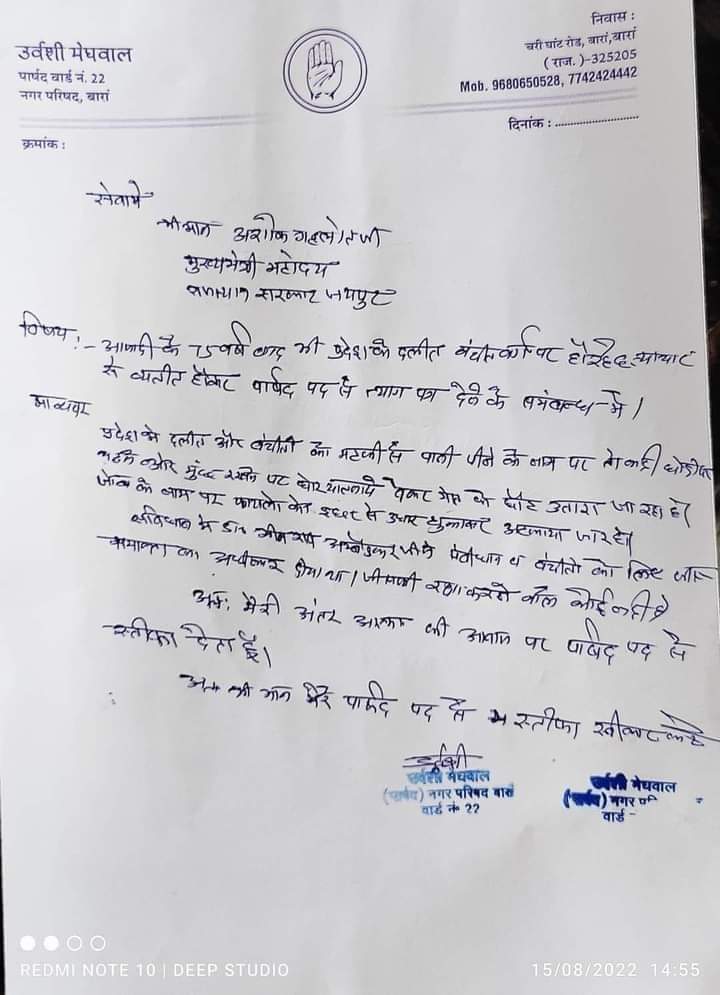 उर्वशी मेघवाल
पार्षद वार्ड नं. 22
नगर परिषद, बारां
निवास :
चरी घांट रोड, बारां, बारां
( राज. )-325205
Mob. 9680650528, 7742424442
दिनांक : ..........................
क्रमांक :
सेवामे
श्रीमान अशोक गहलोत जी
मुख्यमंत्री महोदय
राजस्थान सरकार जयपुर
विषय :- आजादी के 75 वर्ष बाद भी प्रदेश के दलीत वंचीत वर्ग पर हो रहे अत्याचार
से व्यतीत होकर पार्षद पद से त्याग पत्र देने के संबन्ध मे।
मान्यवर
प्रदेश मे दलीत और वंचीतो को मटकी से पानी पीने के नाम पर तो कही घोडी पर
चढने और मुंछ रखने पर घोर यातनाये देकर मोत के घाट उतारा जा रहा है।
जांच के नाम पर फायलो को इधर से उधर घुमाकर अटकाया जा रहा है।
संविधान मे डा० भीम राव अम्बेडकर जी ने दलीतो व वंचीतो को लिए
समानता का अधीकार दीया था। जीसकी रक्षा करने वाला कोई नही है
अतः मैरी अंतर आत्मा की आवाज पर पार्षद पद से
स्तीफा देता हूँ।
अतः श्री मान मैरे पार्षद पद से स्तीफा स्वीकार करे
उर्वशी मेघवाल
(पार्षद) नगर परिषद बारां
वार्ड नं 22
उर्वशी मेघवाल
(पार्षद) नगर
वार्ड
REDMI NOTE 10 | DEEP STUDIO
15/08/2022 14:55